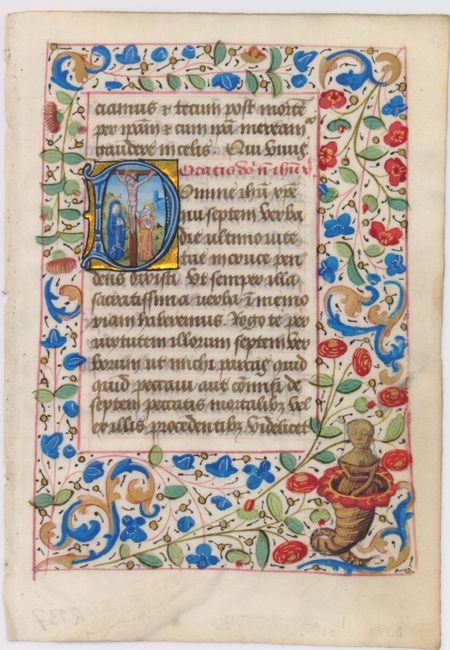 ciamus ⁊ tecum post morte
per ipam ⁊ cum ipa mereamʳ
gaudere in celis. Qui viuis
Oratio dn̄i ihu x̄
Domine ihu xpe
qui septem verba
die ultimo uite
tue in cruce pen
dens dixisti ut semper illa
sacratissima verba ī memo
riam haberemus. Rogo te per
uirtutem illorum septem ver
borum ut michi parcas quid
quid peccaui aut cōmisi de
septem peccatis mortalibz vel
ex illis procedentibz videlicet